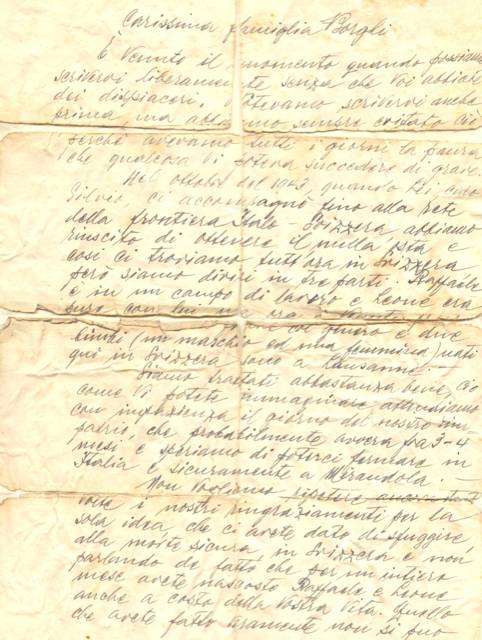 Carissima famiglia Borghi
È venuto il momento quando possiamo
scrivervi liberamente senza che Voi abbiate
dei dispiaceri. Potevamo scrivervi anche
prima ma abbiamo sempre evitato ciò
perchè avevamo tutti i giorni la paura
che qualcosa Vi poteva succedere di grave.
Nel ottobre del 1943, quando Lei, caro
Silvio, ci accompagnò fino alla rete
della frontiera Italo-Svizzera abbiamo
riuscito di ottenere il nulla osta e
così ci troviamo tutt'ora in Svizzera
però siamo divisi in tre parti. Raffaele
è in un campo di lavoro e Leone era
pure con lui
genero e due
bimbi (un maschio ed una femmina) nati
qui in Svizzera sono a Lausanne. —
Siamo trattati abbastanza bene, Ciò
come Vi potete immaginare attendiamo
con impazienza il giorno del nostro rim
patrio, che probabilmente avverà fra 3-4
mesi e speriamo di poterci fermare in
Italia e sicuramente a Mirandola. —
Non vogliamo ripetere
volse i nostri ringraziamenti per la
sola idea che ci avete dato di sfuggire
alla morte sicura, in Svizzera e non
parlando de fatto che per un intiero
mese avete nascosto Raffaele e Leone
anche a costo della Vostra vita. Quello
che avete fatto veramente non si può